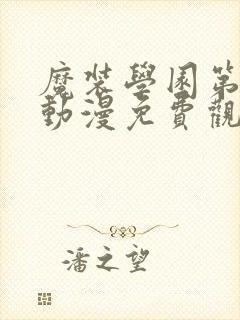 魔裝學園第
動漫免費觀
潘之望